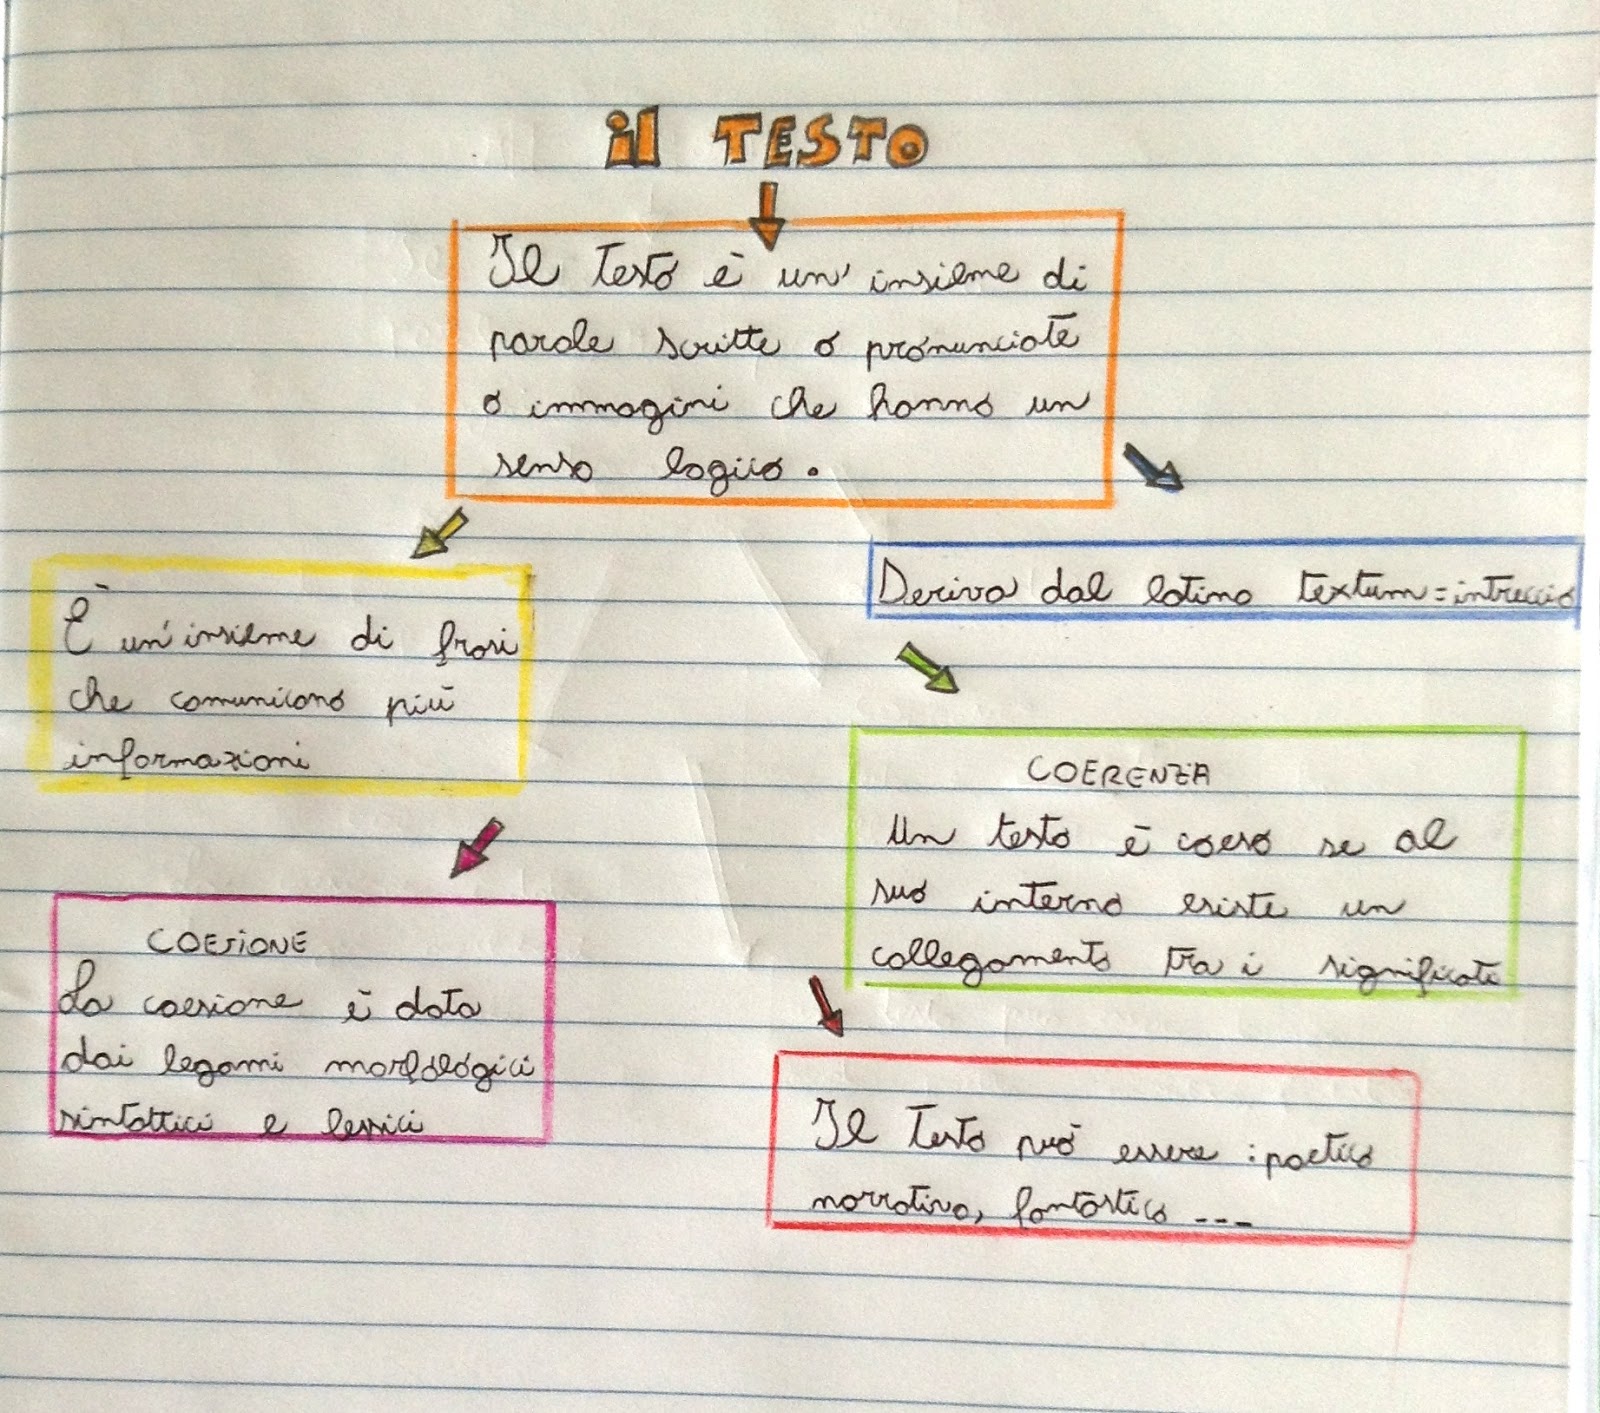 il TESTO
Il testo è un' insieme di
parole scritte o pronunciate
o immagini che hanno un
senso logico.
Deriva dal latino textum = intreccio
È un' insieme di frasi
che comunicano più
informazioni
COERENZA
Un testo è coeso se al
suo interno esiste un
collegamento tra i significati
COESIONE
La coesione è data
dai legami morfologici
sintattici e lessici
Il testo può essere : poetico
narrativo, fantastico ---